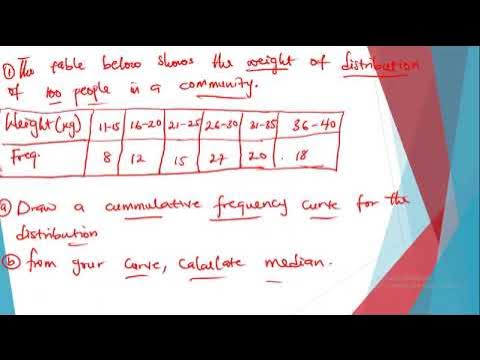 ① The table below shows the weight of distribution
of 100 people in a community.
Weight (kg) 11-15 16-20 21-25 26-30 31-35 36-40
Freq. 8 12 15 27 20 18
ⓐ Draw a cummulative frequency curve for the
distribution
ⓑ from your curve, calculate median.